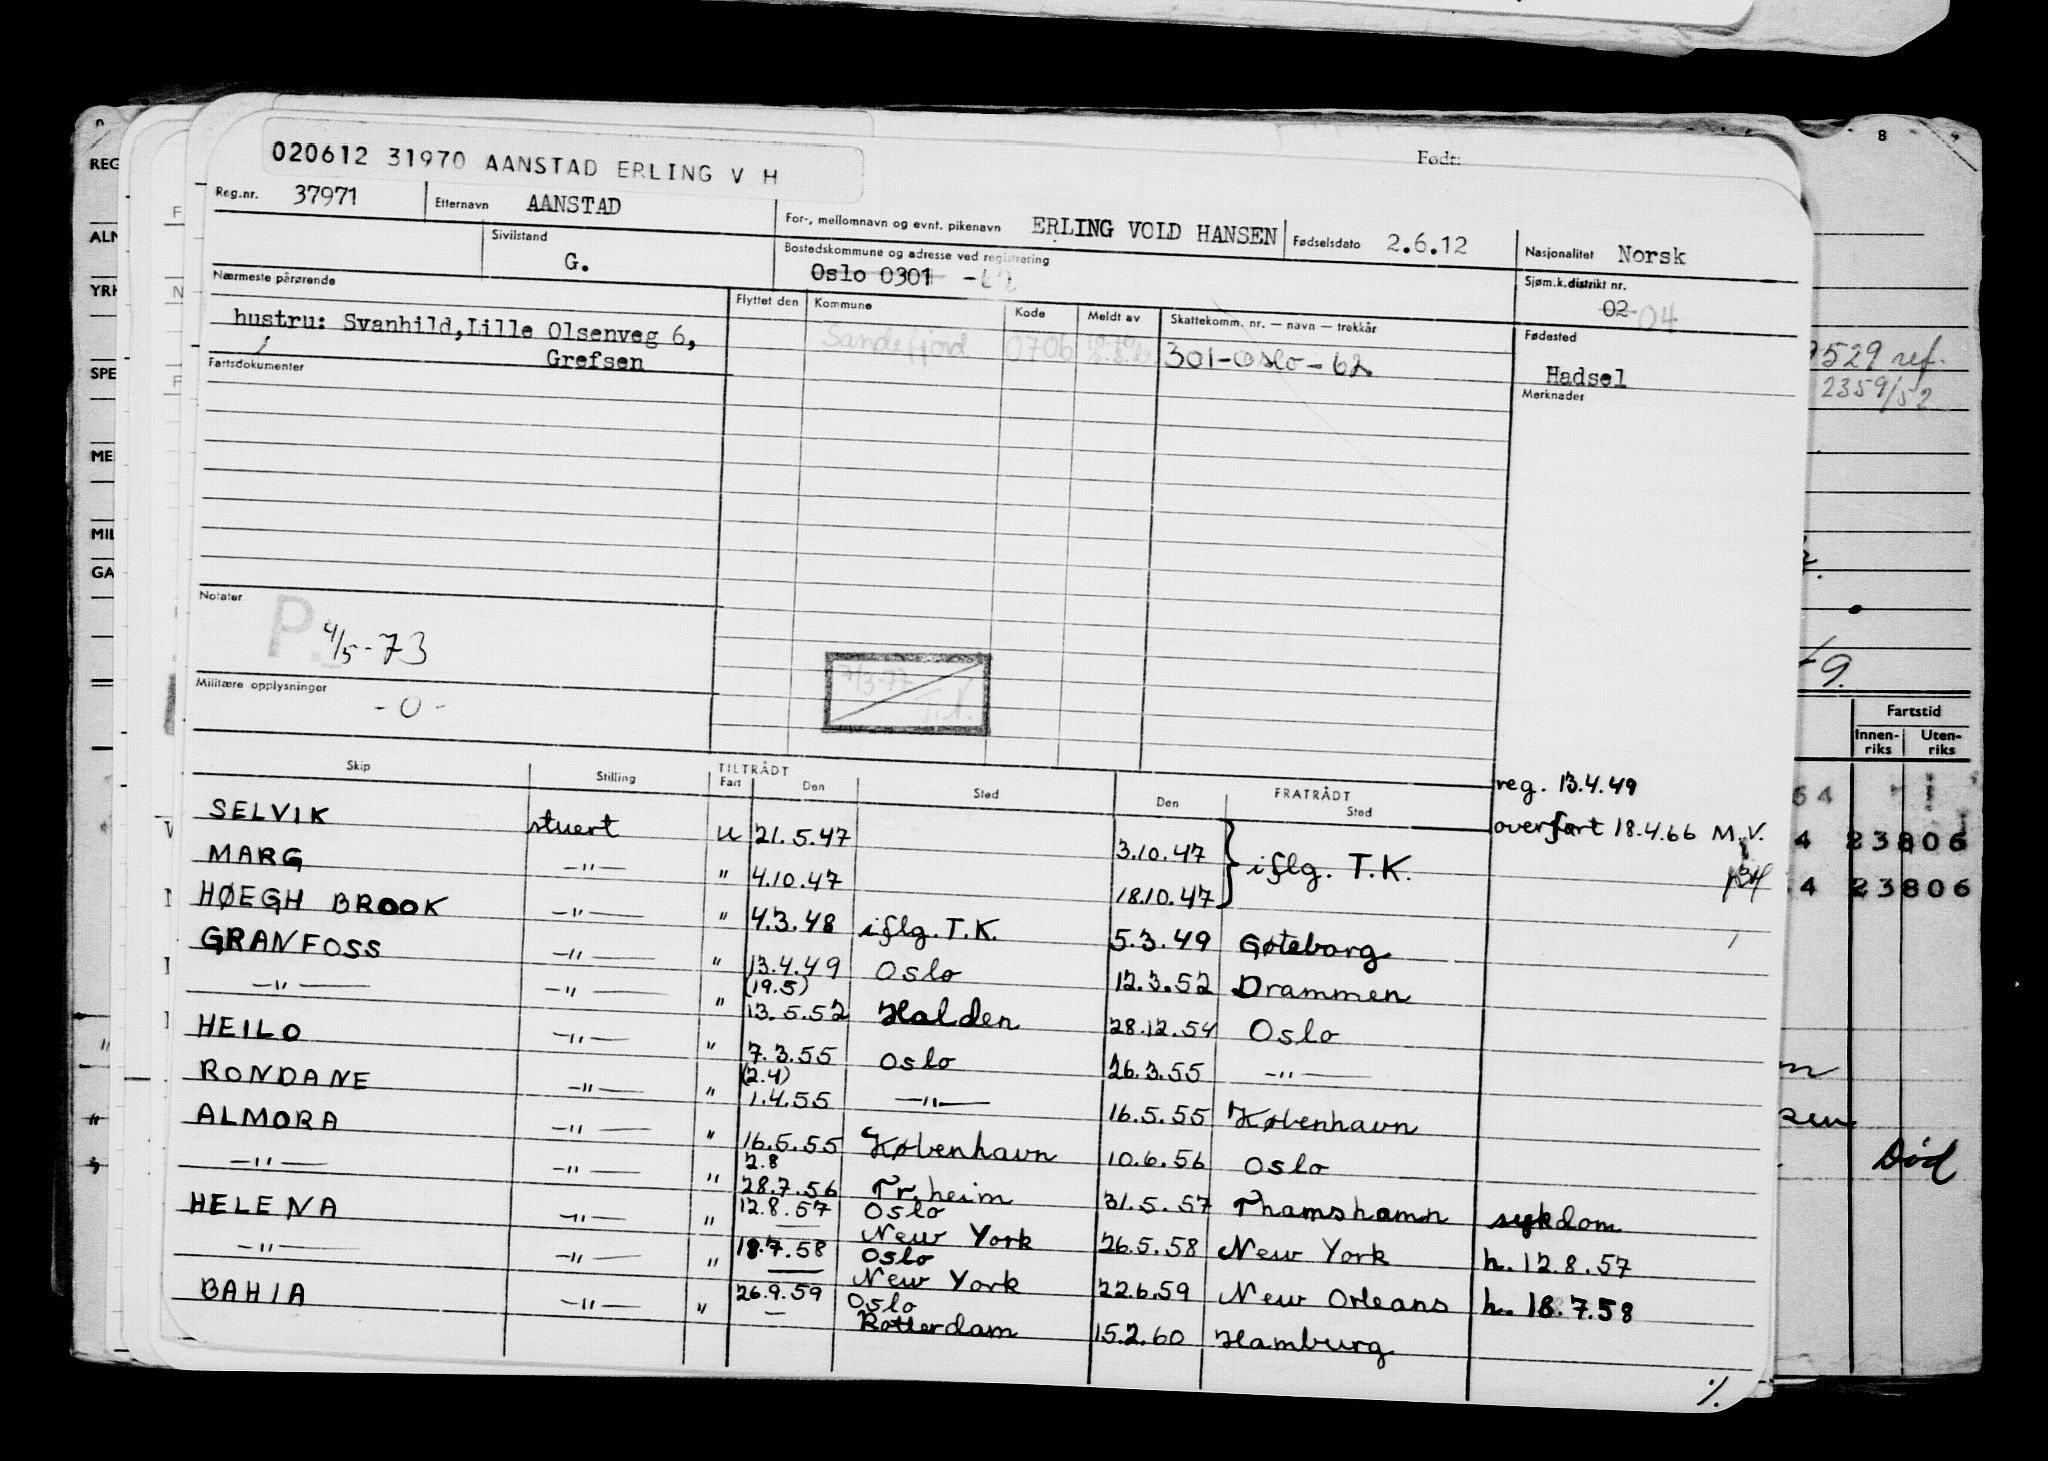 Født:
020612 31970 AANSTAD ERLING V H
Reg.nr. 37971 Etternavn AANSTAD For-, mellomnavn og evnt. pikenavn ERLING VOLD HANSEN Fødselsdato 2.6.12 Nasjonalitet Norsk
Sivilstand G. Bostedskommune og adresse ved registrering Oslo 0301 Sjøm.k.distrikt nr. 02 04
Nærmeste pårørende Flyttet den Kommune Kode Meldt av Skattekomm. nr. — navn — trekkår Fødested
hustru: Svanhild, Lille Olsenveg 6, Sandefjord 0706 301-Oslo-62 Hadsel
Grefsen
Fartsdokumenter Merknader
Notater
P. 4/5-73
Militære opplysninger
-0-
7/3-77
Skip Stilling TILTRÅDT Fart Den Sted FRATRÅDT Den Sted reg. 13.4.49
SELVIK stuert u 21.5.47 3.10.47 iflg. T.K. overført 18.4.66 M.V.
MARG -"- " 4.10.47 18.10.47
HØEGH BROOK -"- " 4.3.48 iflg. T.K. 5.3.49 Gøteborg
GRANFOSS -"- " 13.4.49 Oslo 12.3.52 Drammen
-"- -"- " (19.5) 13.5.52 Halden 28.12.54 Oslo
HEILO -"- " 7.3.55 Oslo 26.3.55 -"-
RONDANE -"- " (2.4) 1.4.55 -"- 16.5.55 København
ALMORA -"- " 16.5.55 København 10.6.56 Oslo
-"- -"- " 2.8 28.7.56 Tr.heim 31.5.57 Thamshamn sykdom
HELENA -"- " 12.8.57 Oslo New York 26.5.58 New York h. 12.8.57
-"- -"- " 18.7.58 Oslo New York 22.6.59 New Orleans h. 18.7.58
BAHIA -"- " 26.9.59 Oslo Rotterdam 15.2.60 Hamburg
%
8
9529 ref.
2359/52
Fartstid
Innen-riks Uten-riks
64
4 23806
4 23806
Død
REG
YRK
SPE
MIL
GA